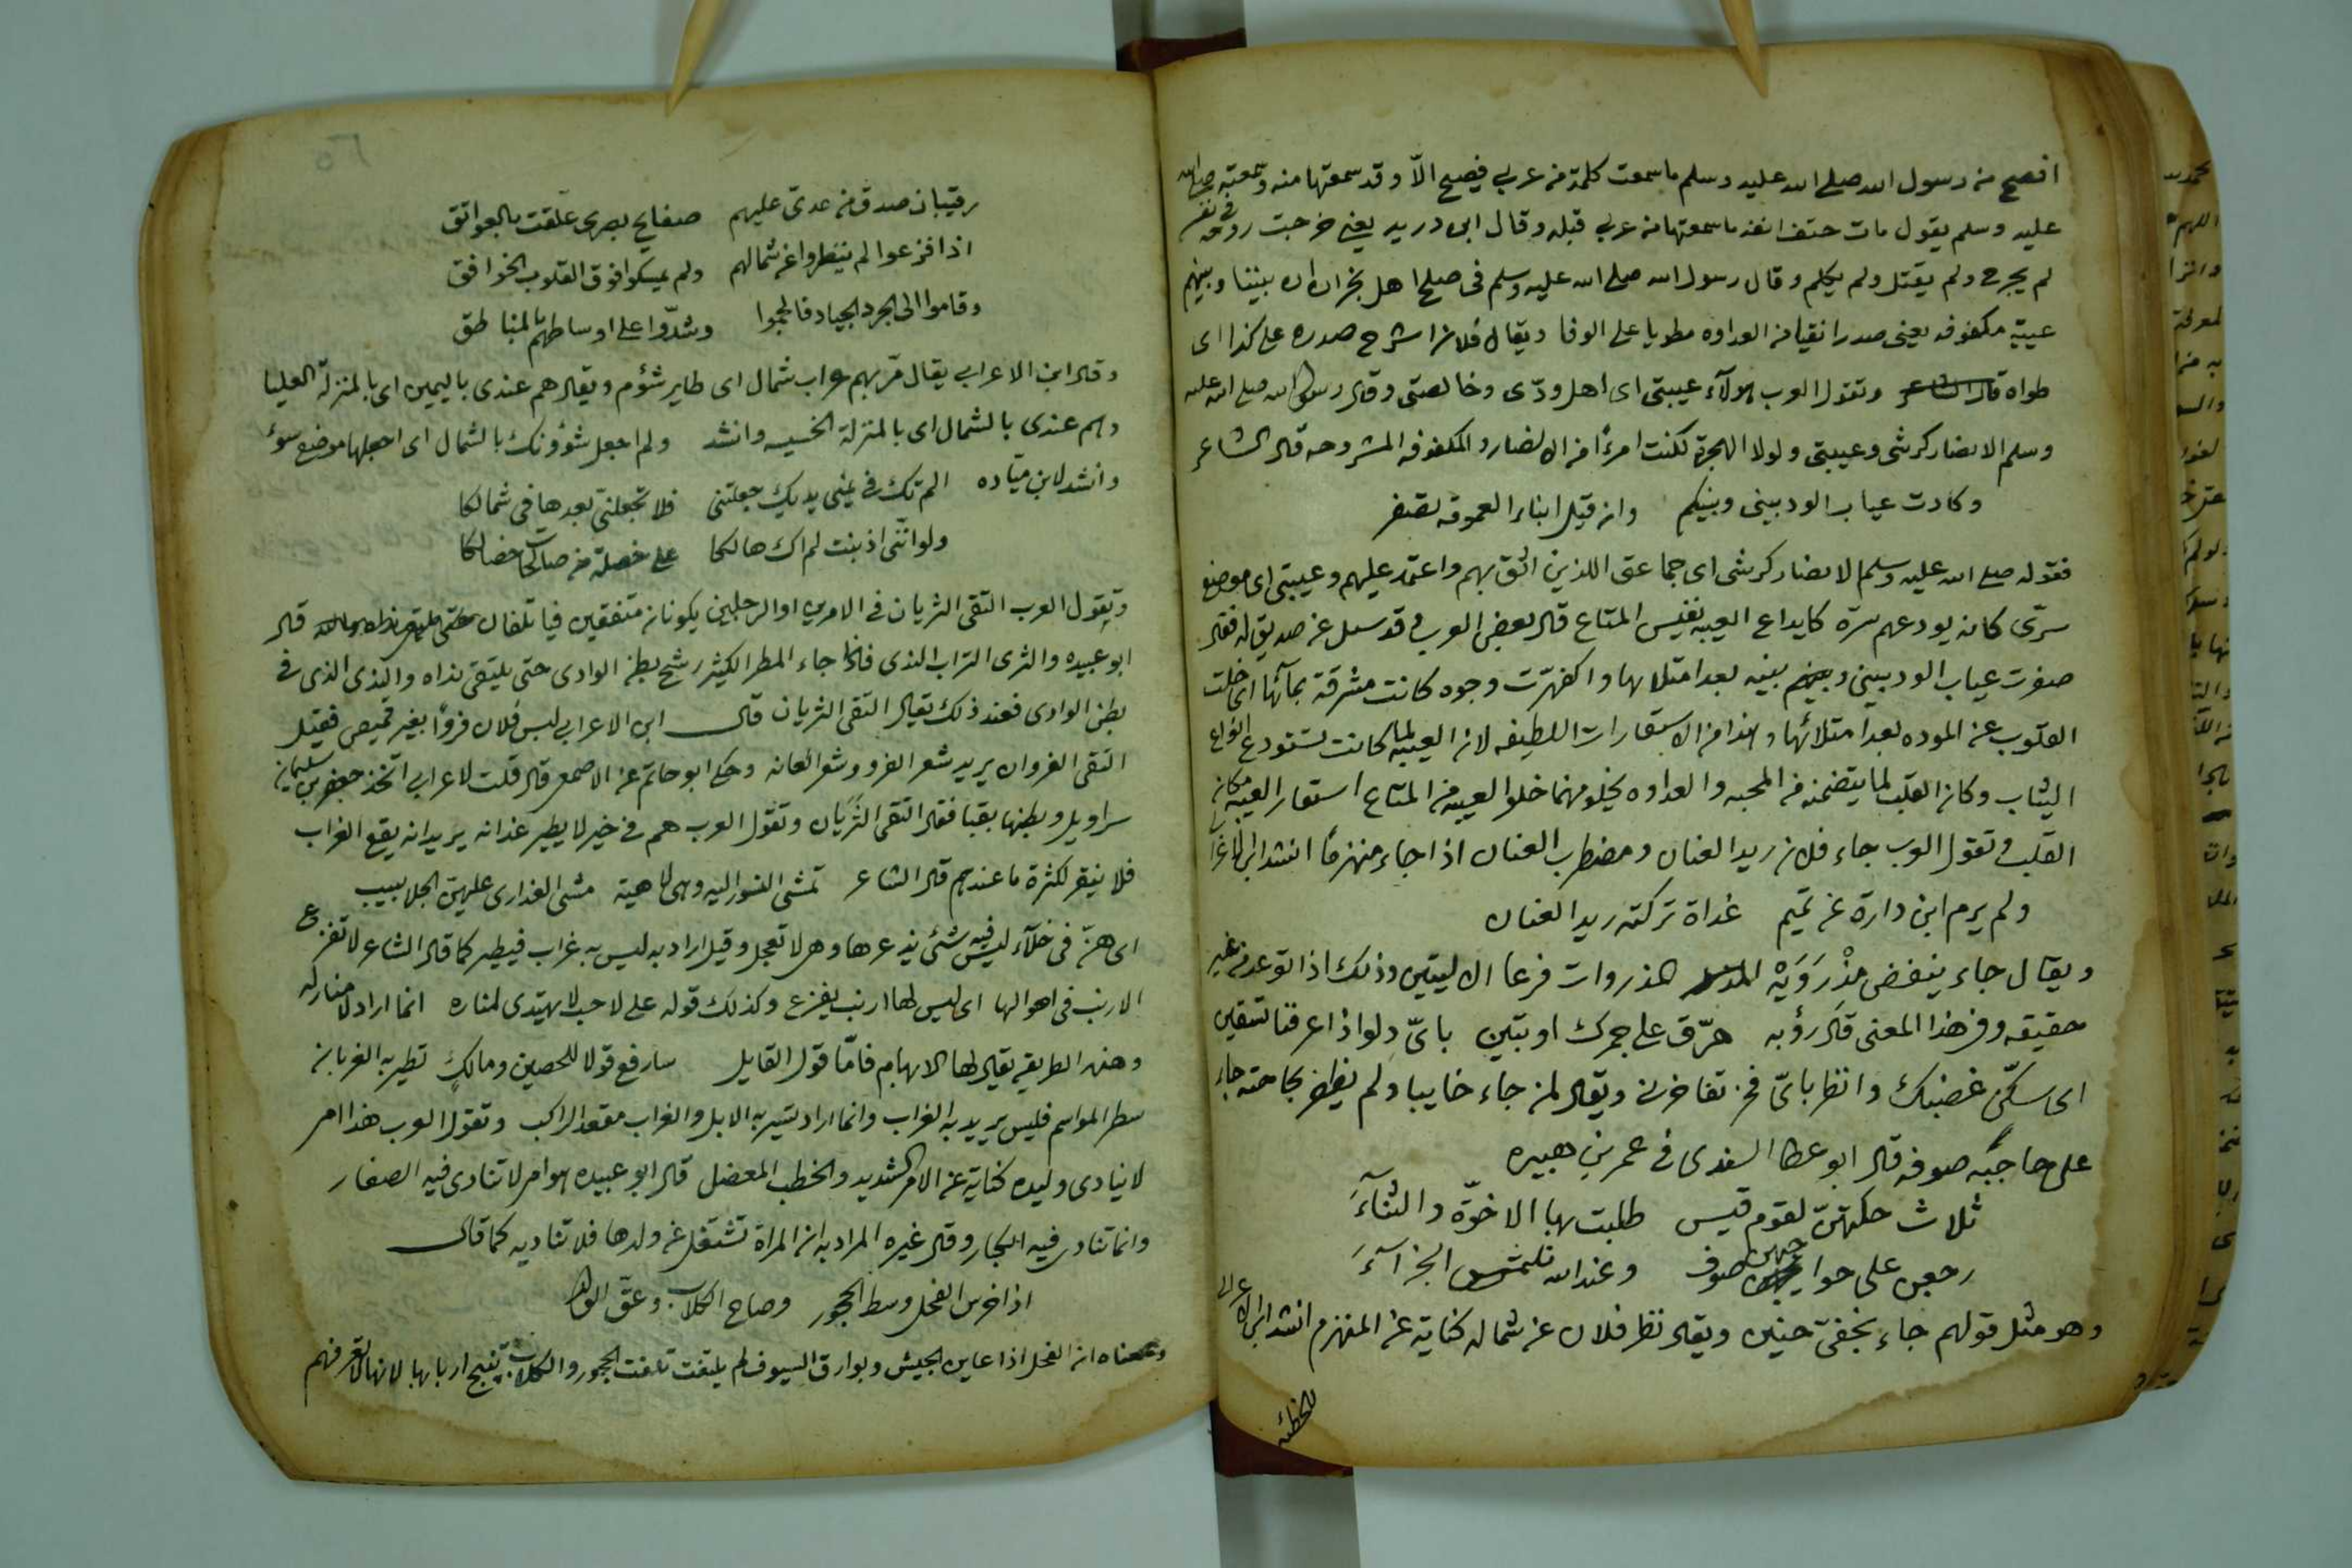 افصح من رسول الله صلى الله عليه وسلم ما سمعت كلمة من عربي فصيح الّا وقد سمعتها منه وسمعته صلى الله
عليه وسلم يقول مات حتف انفه ما سمعتها من عربي قبله وقال ابن دريد يعني خرجت روحه في نفسه
لم يجرح ولم يقتل ولم يكلم وقال رسول الله صلى الله عليه وسلم في صلح اهل نجران ان بيننا وبينهم
عيبة مكفوفه يعني صدرا نقيا من العداوه مطويا على الوفا ويقال فلان اشرح صدره على كذا اى
طواه وتقول العرب هولآء عيبتى اى اهل ودّى وخالصتى وقال رسول الله صلى الله عليه
وسلم الانصار كرشى وعيبتى ولولا الهجرة لكنت امرءًا من الانصار والمكفوفه المشروحه قال الشاعر
وكادت عياب الود بينى وبينكم وان قيل ابناء العمومه تصفر
فقوله صلى الله عليه وسلم الانصار كرشى اى جماعتى اللذين اثق بهم واعتمد عليهم وعيبتى اى موضع
سرّى كانه يودعهم سرّه كايداع العيبه نفيس المتاع قال بعض العرب وقد سئل عن صديق له فقال
صفرت عياب الود بينى وبينه بعد امتلائها واكفهرّت وجوه كانت مشرقة بمآئها اى خلت
القلوب عن الموده بعد امتلائها وهذا من الاستعارات اللطيفه لان العيبه لما كانت تستودع انواع
الثياب وكان القلب لما يتضمنه من المحبه والعداوه يخلو منهما خلوا العيبه من المتاع استعار العيبه مكان
القلب وتقول العرب جاء فلان ربد العنان ومضطرب العنان اذا جاء منهزمًا انشد ابن الاعرا
ولم يرم ابن دارة عن تميم غداة تركته ربد العنان
ويقال جاء ينفض مِذْرَوَيْه المذروان فرعا الاليتين وذلك اذا توعد من غير
حقيقه وفى هذا المعنى قال رؤبه هرّق على جمرك او تبين باىّ دلو اذا عرفنا تستقين
اى سكّن غضبك وانظر باىّ فخر تفاخرنى ويقال لمن جاء خايبا ولم يظفر بحاجته جاء
على حاجبه صوفه قال ابو عطا السندى فى عمر بن هبيره
ثلاث حكتهنّ لقوم قيس طلبت بها الاخوّة والثنآءَ
رجعن على حواجبهن صوف وعند الله نلتمس الجزآءَ
وهو مثل قولهم جاء بخفىّ حنين ويقال نظر فلان عن شماله كناية عن المنهزم انشد ابن الاعرابى
للحطئه
رقيبان صدق من عدىّ عليهم صفايح بصرى علّقت بالعواتق
اذا فزعوا لم ينظروا عن شمالهم ولم يمسكوا فوق القلوب الخوافق
وقاموا الى الجرد الجياد فالجموا وشدّوا على اوساطهم بالمناطق
وقال ابن الاعرابى يقال مرّ بهم غراب شمال اى طاير شؤم ويقال هم عندى باليمين اى بالمنزلة العليا
وهم عندى بالشمال اى بالمنزلة الخسيسه وانشد ولم اجعل شؤونك بالشمال اى اجعلها موضع سوء
وانشد لابن ميّاده الم تك فى يمنى يديك جعلتنى فلا تجعلنّى بعدها فى شمالكا
ولو انّنى اذنبت لم اك هالكا على خصلة من صالحات خصالكا
وتقول العرب التقى الثريان فى الامرين او الرجلين يكونان متفقين فياتلفان قال
ابو عبيده والثرى التراب الندى فاذا جاء المطر الكثير رشح بطن الوادى حتى يلتقى نداه والندى الذى فى
بطن الوادى فعند ذلك يقال التقى الثريان قال ابن الاعرابى لبس فلان فروًا بغير قميص فقيل
التقى الفروان يريد شعر الفرو وشعر العانه وحكى ابو حاتم عن الاصمعى قال قلت لاعرابى اتخذ جعفر بن سليمان
سراويل وبطنها بقبا فقال التقى الثَرَيان وتقول العرب هم فى خير لا يطير غرابه يريد انه يقع الغراب
فلا ينفر لكثرة ما عندهم قال الشاعر تمشى النسور اليه وهى لاهية مشى العذارى عليهنّ الجلابيب
اى هنّ فى خلآء ليس فيه شئ يذعرها وهى لا تعجل وقيل اراد به ليس به غراب فيطير كما قال الشاعر لا تفزع
الارنب فى اهوالها اى ليس لها ارنب يفزع وكذلك قوله على لاحب لا يهتدى لمناره انما اراد لا منار له
وهذه الطريقه يقال لها الابهام فامّا قول القايل سارفع قولا للحصين ومالكٍ تطير به الغربان
سطر المواسم فليس يريد به الغراب وانما اراد تسير به الابل والغراب مقعد الراكب وتقول العرب هذا امر
لا ينادى وليده كناية عن الامر الشديد والخطب المعضل قال ابو عبيده هو امر لا تنادى فيه الصغار
وانما تنادى فيه الكبار وقال غيره المراد به ان المراة تشتغل عن ولدها فلا تناديه كما قال
اذا خرس الفحل وسط الحجور وصاح الكلاب وعقّ الولد
ومعناه ان الفحل اذا عاين الجيش وبوارق السيوف لم يلتفت تلفت الحجور والكلاب تنبح اربابها لانها لا تعرفهم